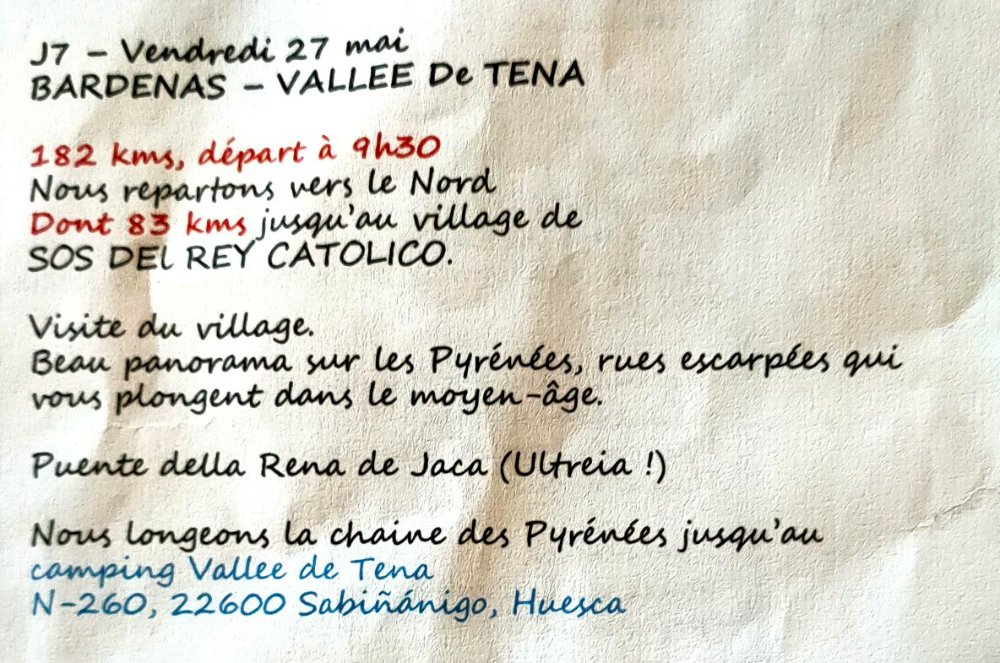 J7 – Vendredi 27 mai
BARDENAS – VALLEE De TENA
182 kms, départ à 9h30
Nous repartons vers le Nord
Dont 83 kms jusqu'au village de
SOS DEl REY CATOLICO.
Visite du village.
Beau panorama sur les Pyrénées, rues escarpées qui
vous plongent dans le moyen-âge.
Puente della Rena de Jaca (Ultreia !)
Nous longeons la chaine des Pyrénées jusqu'au
camping Vallee de Tena
N-260, 22600 Sabiñánigo, Huesca